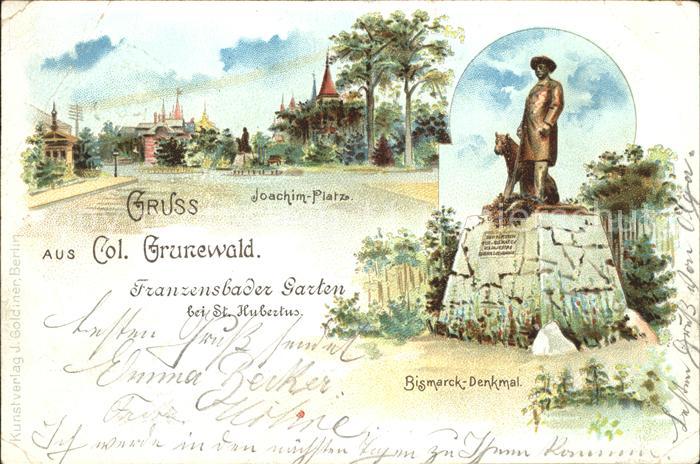 Gruss
Joachim-Platz.
aus Col. Grunewald.
Franzensbader Garten
bei St. Hubertus.
Bismarck-Denkmal.
besten Gruß sendet
Emma Becker
Fritz Höhne
Ich werde in den nächsten Tagen zu Ihnen kommen.
Kunstverlag J. Goldiner, Berlin